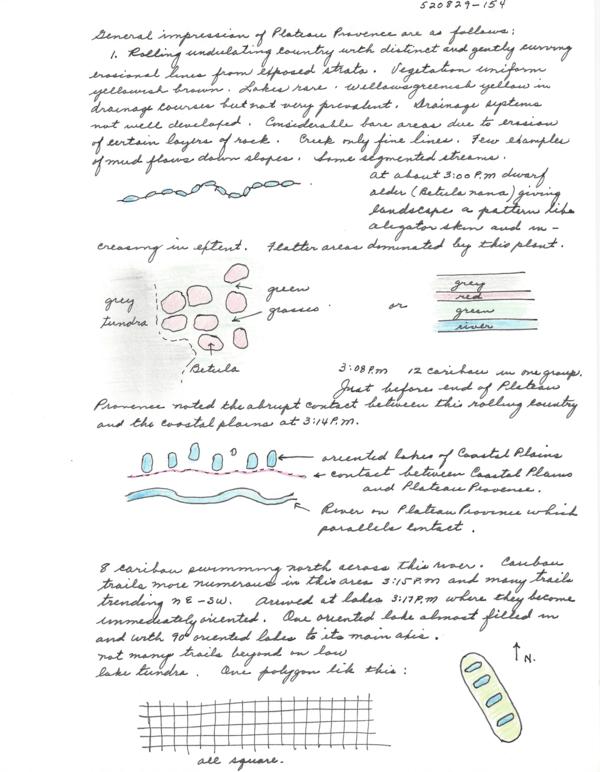 520829-154
General impression of Plateau Provence are as follows:
1. Rolling undulating country with distinct and gently curving
erosional lines from exposed strata. Vegetation uniform
yellowish brown. Lakes rare. Willows greenish yellow in
drainage courses but not very prevalent. Drainage systems
not well developed. Considerable bare areas due to erosion
of certain layers of rock. Creek only fine lines. Few examples
of mud flows down slopes. Some segmented streams.
at about 3:00 P.M dwarf
alder (Betula nana) giving
landscape a pattern like
aligator skin and in-
creasing in extent. Flatter areas dominated by this plant.
grey
tundra
green
grasses
Betula
or
grey
red
green
river
3:08 P.M 12 caribou in one group.
Just before end of Plateau
Provence noted the abrupt contact between this rolling country
and the coastal plains at 3:14 P.M.
oriented lakes of Coastal Plains
contact between Coastal Plains
and Plateau Provense.
River on Plateau Province which
parallels contact.
8 caribou swimming north across this river. Caribou
trails more numerous in this area 3:15 P.M and many trails
trending NE-SW. Arrived at lakes 3:17 P.M where they become
immediately oriented. One oriented lake almost filled in
and with 90° oriented lakes to its main axis.
not many trails beyond on low
lake tundra. One polygon like this:
N.
all square.